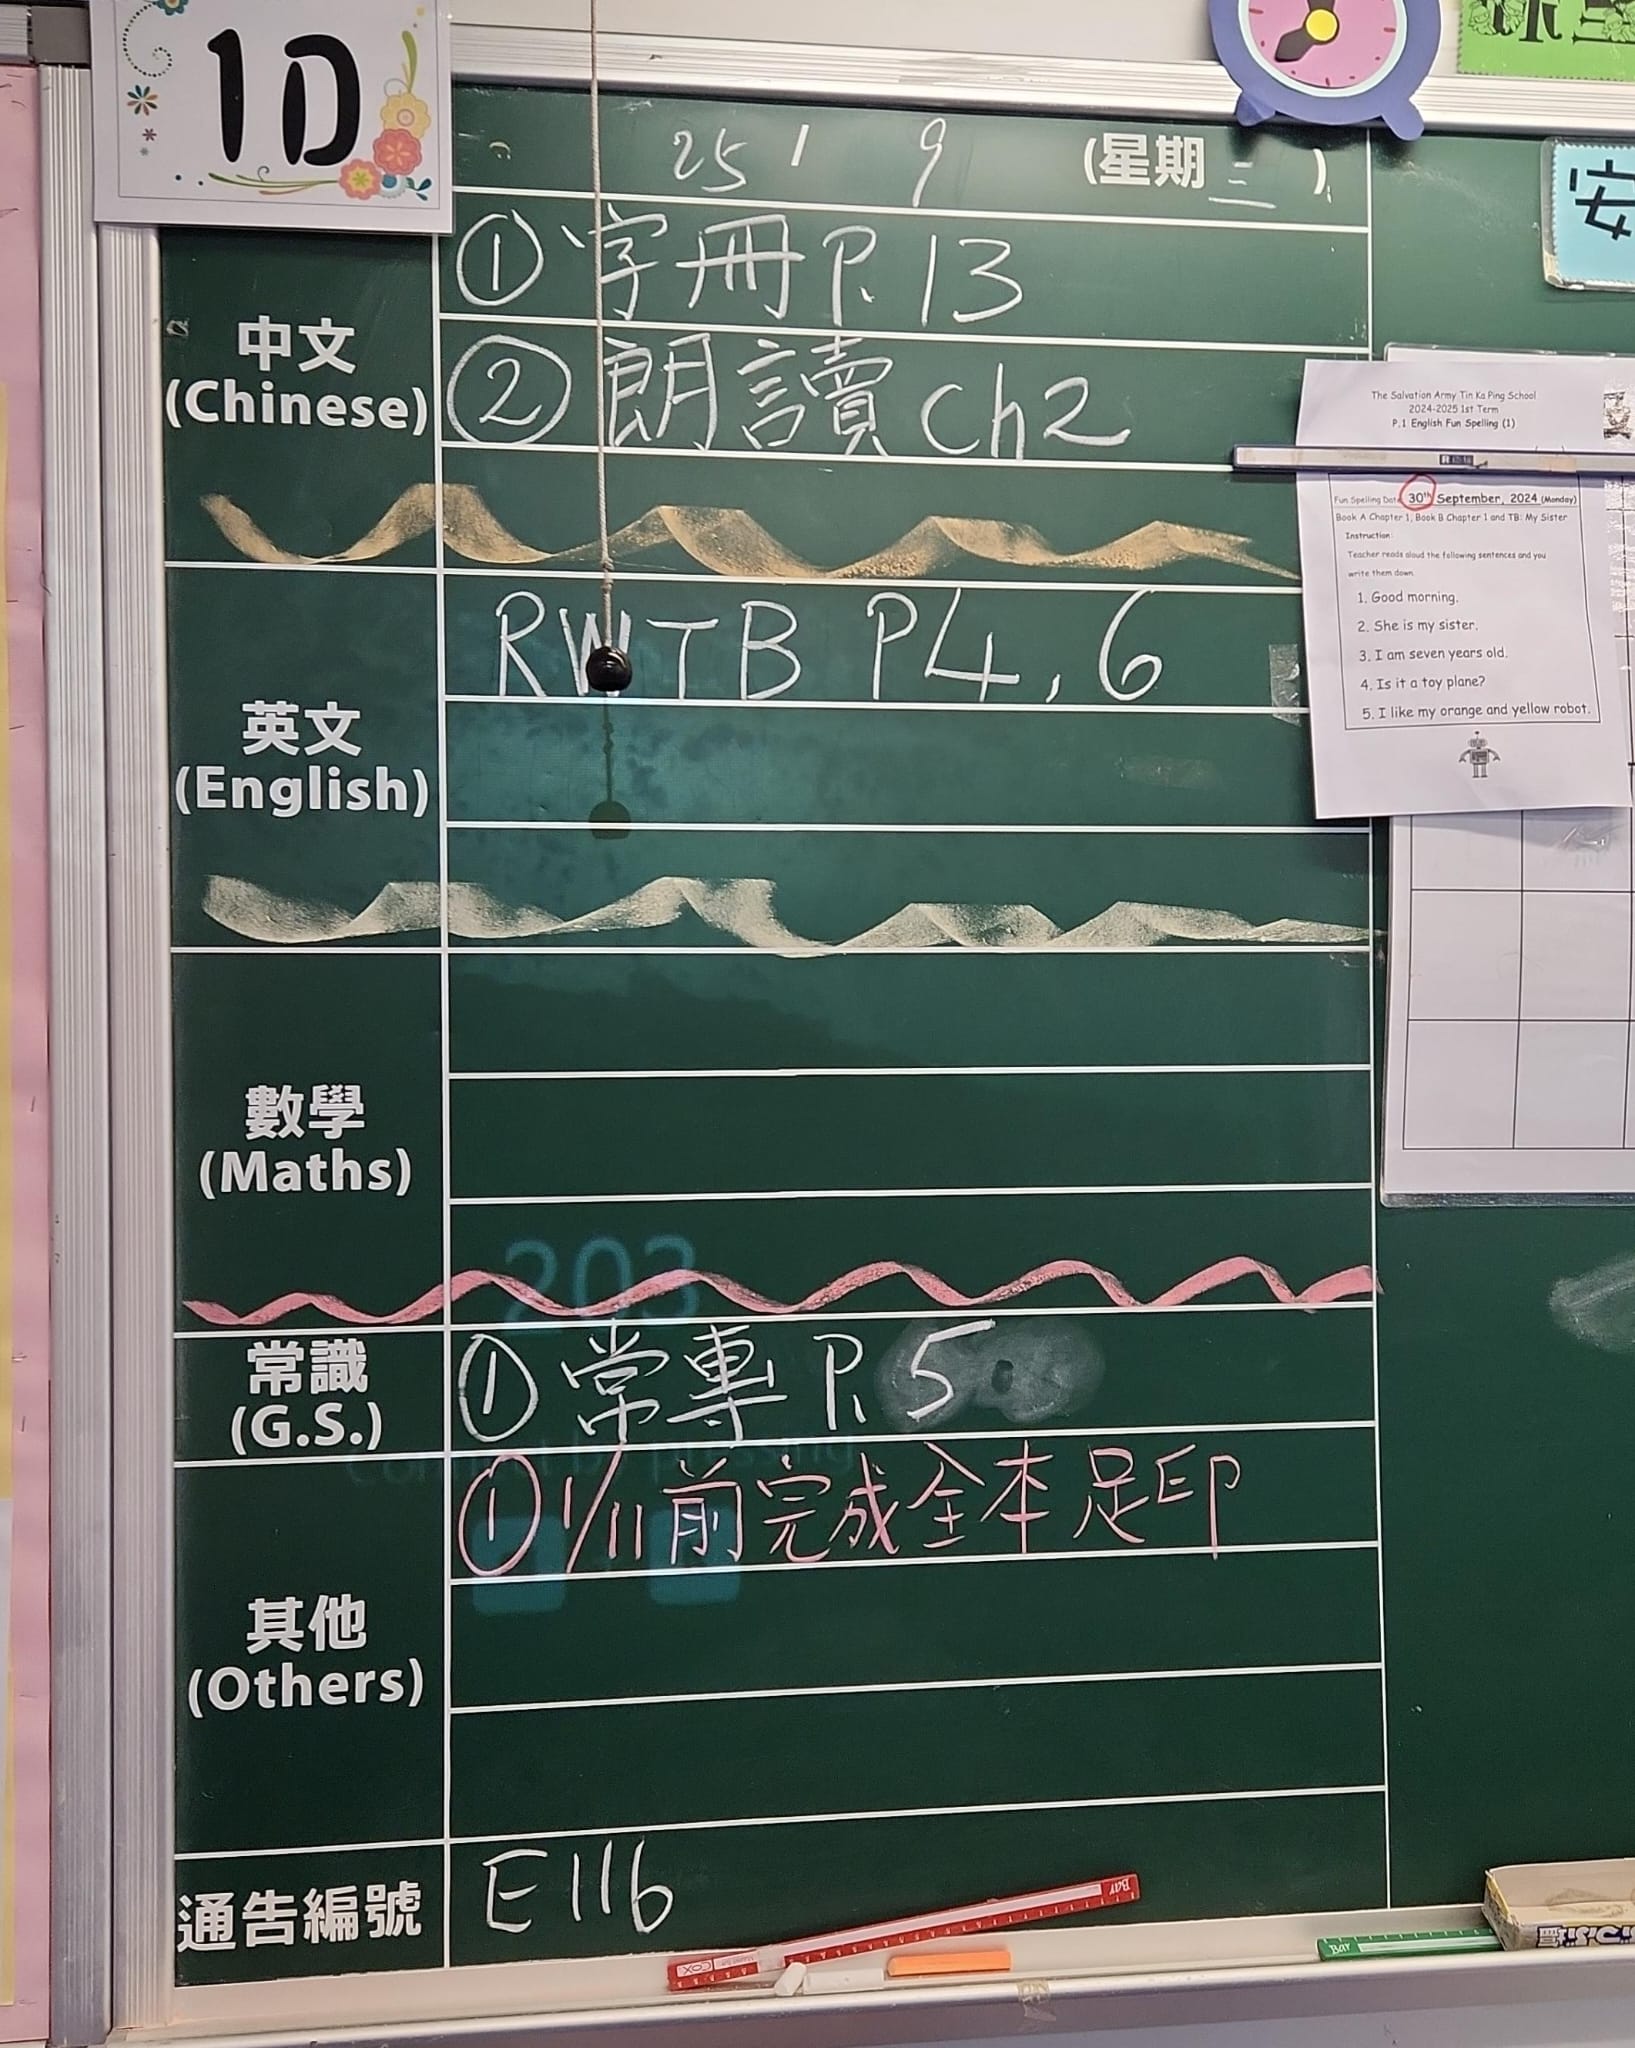 1D
25 / 9 (星期三)
中文
(Chinese)
① 字冊 P. 13
② 朗讀 Ch2
英文
(English)
RWTB P4, 6
數學
(Maths)
203
常識
(G.S.)
① 常專 P. 5
其他
(Others)
① 1/11前完成全本足印
通告編號
E116
安
The Salvation Army Tin Ka Ping School
2024-2025 1st Term
P.1 English Fun Spelling (1)
Fun Spelling Date: 30th September, 2024 (Monday)
Book A Chapter 1, Book B Chapter 1 and TB: My Sister
Instruction:
Teacher reads aloud the following sentences and you
write them down.
1. Good morning.
2. She is my sister.
3. I am seven years old.
4. Is it a toy plane?
5. I like my orange and yellow robot.
Bar
COX
Bar